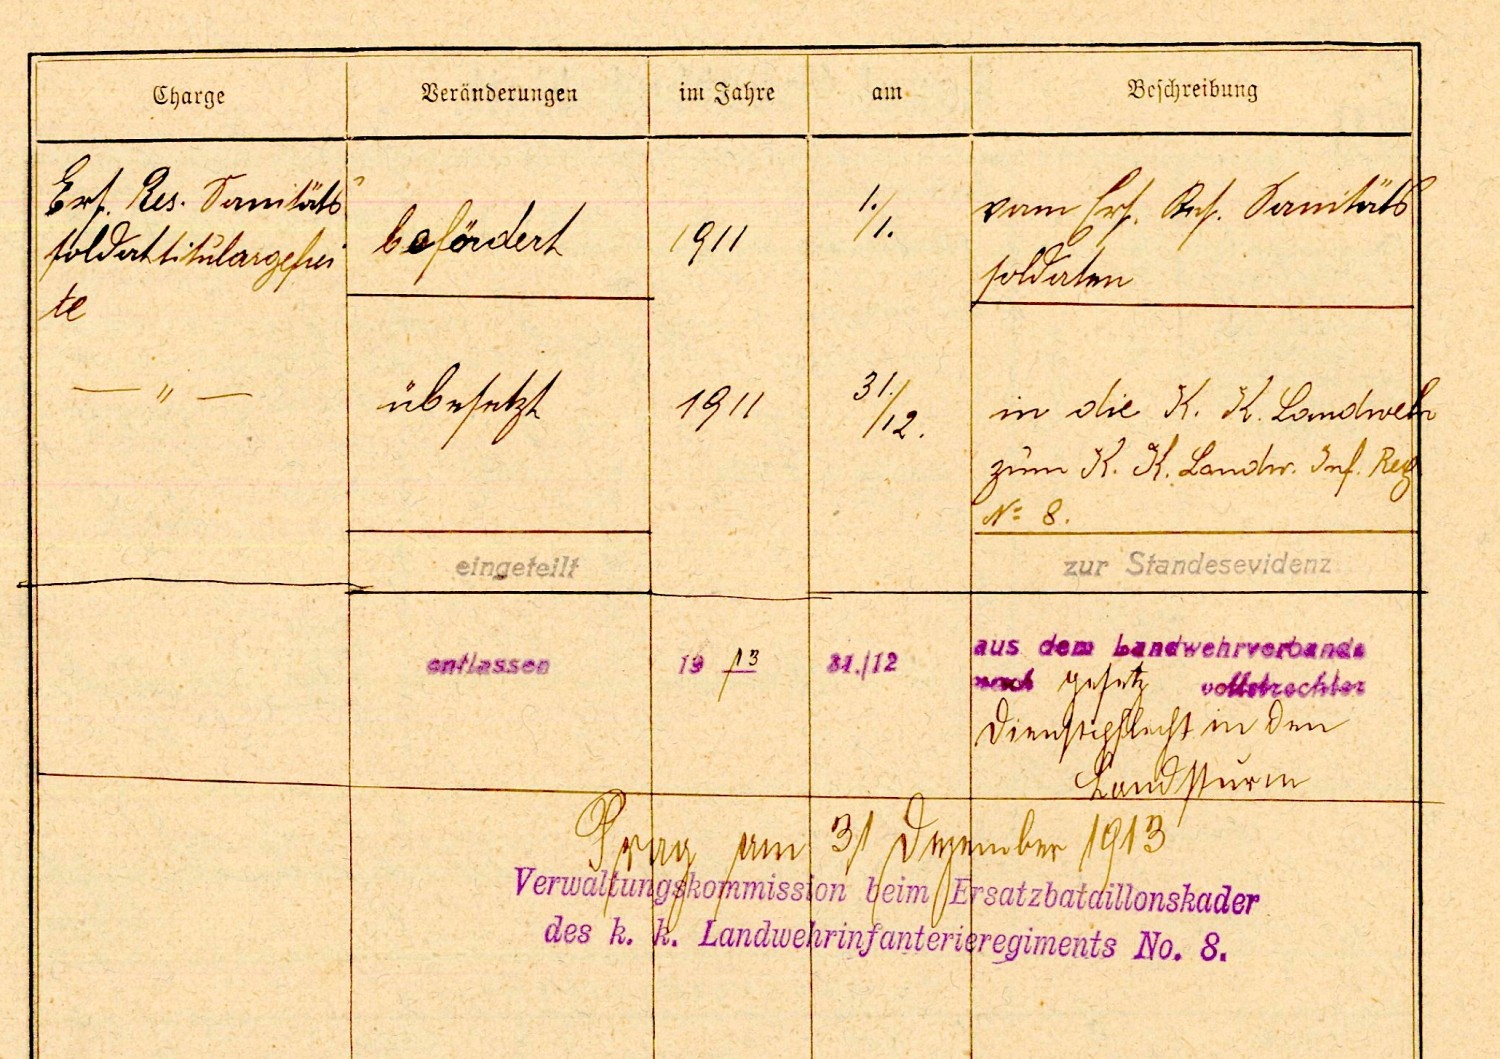 Charge Veränderungen im Jahre am Beschreibung
Ers. Res. Sanitäts
soldat titulargefrei
te
befördert 1911 1./1. vom Ers. Res. Sanitäts
soldaten
— " — übersetzt 1911 31./12. in die K. K. Landwehr
zum K. K. Landw. Inf. Reg
№ 8.
eingeteilt zur Standesevidenz
entlassen 19 13 31./12 aus dem Landwehrverbande
nach gesetz vollstreckter
Dienstpflicht in den
Landsturm
Prag am 31 Dezember 1913
Verwaltungskommission beim Ersatzbataillonskader
des k. k. Landwehrinfanterieregiments No. 8.